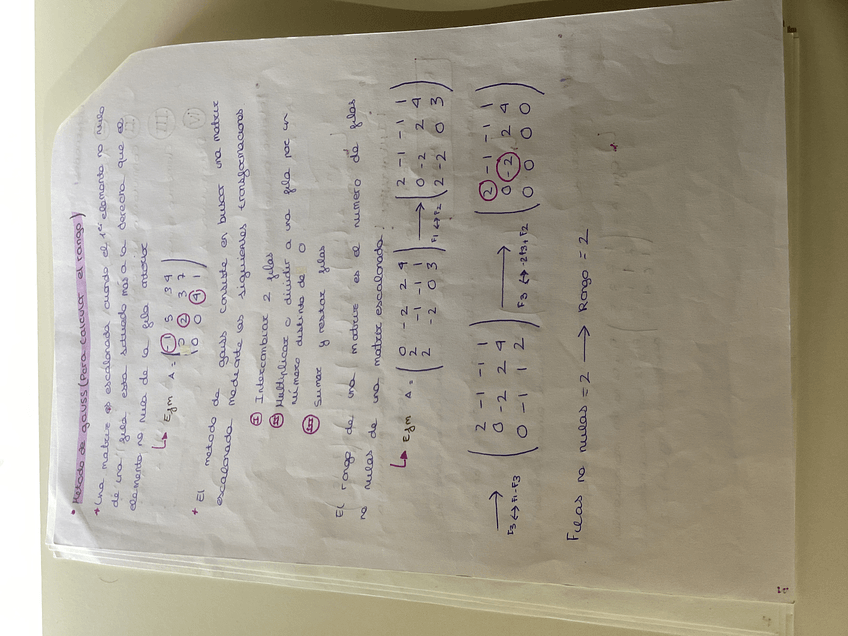 • Metodo de gauss (Para calcular el rango)
+ Una matrix es escalonada cuando el 1er elemento no nulo
de una fila esta situado mas a la derecha que el
elemento no nula de la fila anterior
↳ Ejm A = ( -1 5 3 9
0 2 3 7
0 0 4 1 )
+ El metodo de gauss consiste en buscar una matrix
escalonada mediante las siguientes transformaciones
I Intercambiar 2 filas
II Multiplicar o dividir a una fila por un
número distinto de 0
III Sumar y restar filas
El rango de una matrix es el numero de filas
no nulas de una matrix escalonada:
↳ Ejm A = ( 0 -2 2 4
2 -1 -1 1
2 -2 0 3 ) → F1 ↔ F2 ( 2 -1 -1 1
0 -2 2 4
2 -2 0 3 )
→ F3 ↔ F1-F3 ( 2 -1 -1 1
0 -2 2 4
0 -1 1 2 ) → F3 ↔ -2F3+F2 ( 2 -1 -1 1
0 -2 2 4
0 0 0 0 )
Filas no nulas = 2 → Rango = 2